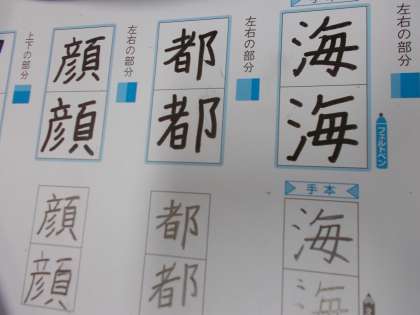 左右の部分
海
海
フェルトペン
左右の部分
都
都
左右の部分
顔
顔
上下の部分
手本
海
海
都
都
顔
顔